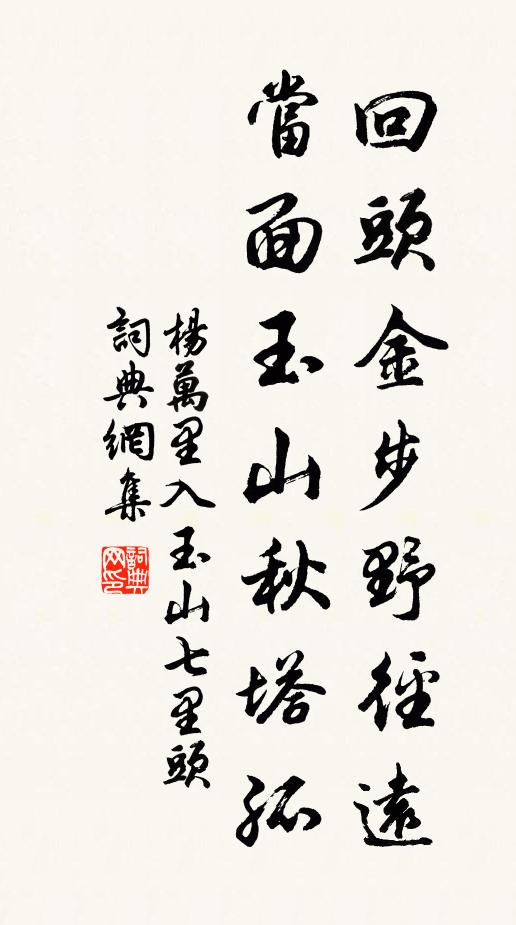 回頭金步野徑遠
當面玉山秋塔孤
楊萬里入玉山七里頭
詞典網集
詞典网印